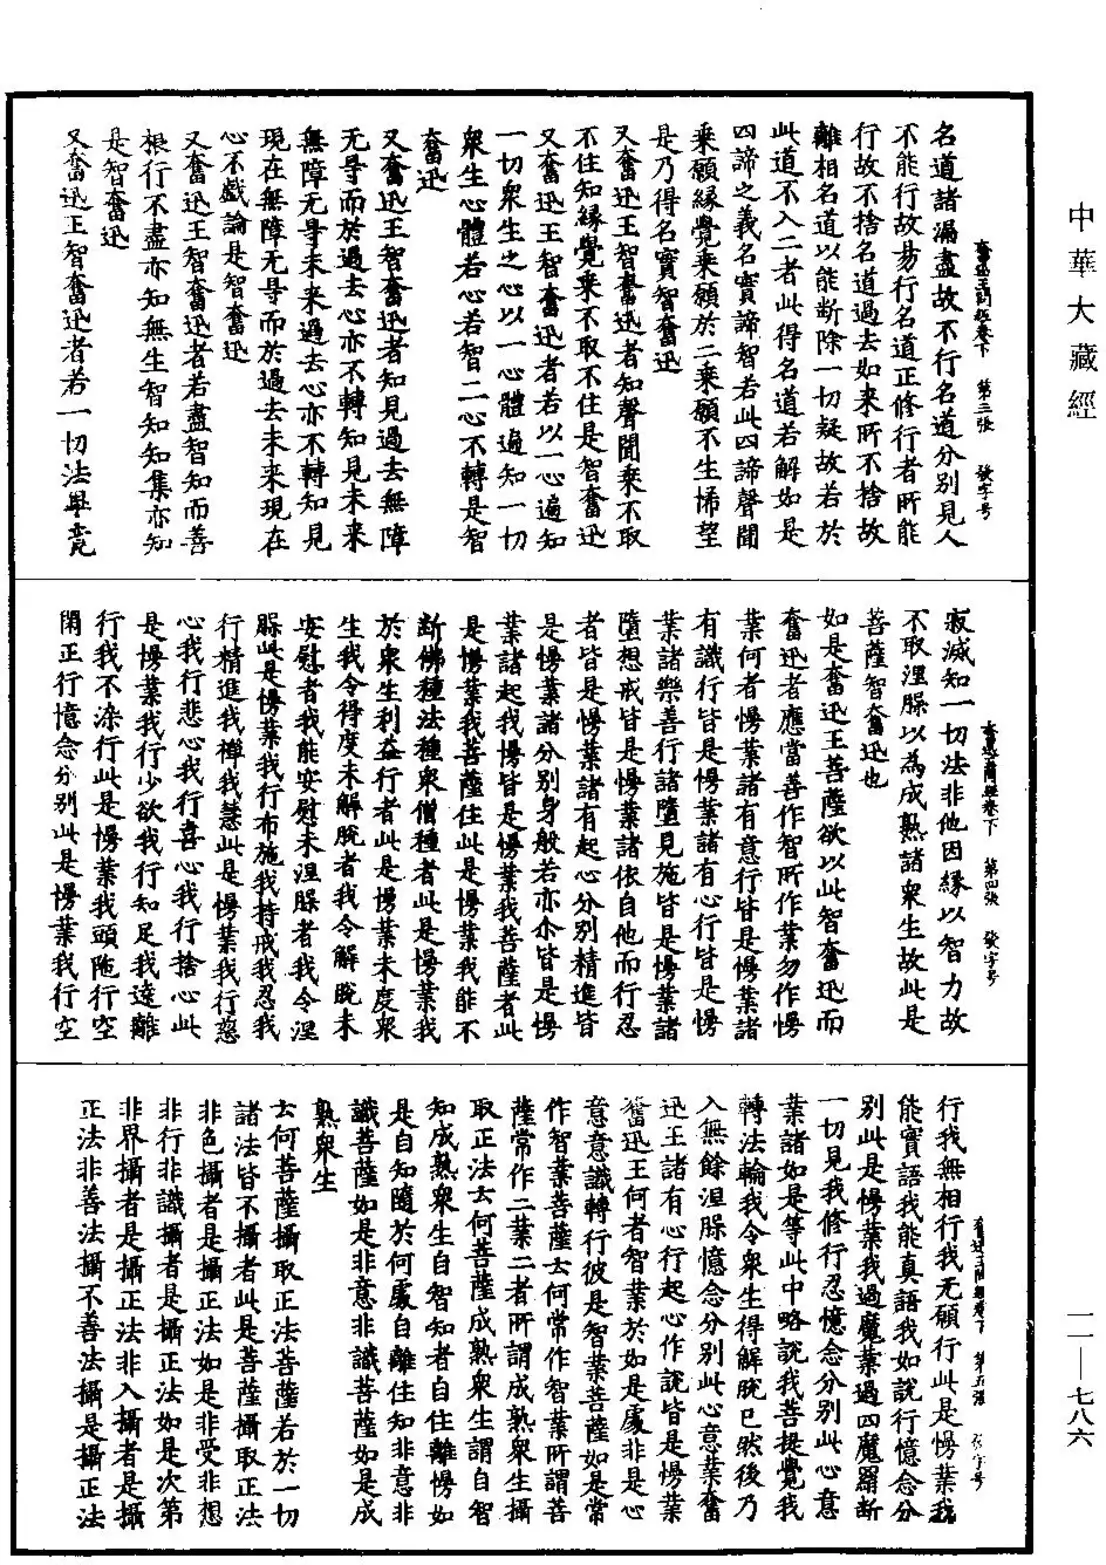 中華大藏經
奮迅王問經卷下 第三張 發字号
名道諸漏盡故不行名道分別見人
不能行故易行名道正修行者所能
行故不捨名道過去如來所不捨故
離相名道以能斷除一切疑故若於
此道不入二者此得名道若解如是
四諦之義名實諦智若此四諦聲聞
乘願緣覺乘願於二乘願不生悕望
是乃得名實智奮迅
又奮迅王智奮迅者知聲聞乘不取
不住知緣覺乘不取不住是智奮迅
又奮迅王智奮迅者若以一心遍知
一切衆生之心以一心體遍知一切
衆生心體若心若智二心不轉是智
奮迅
又奮迅王智奮迅者知見過去無障
无导而於過去心亦不轉知見未來
無障无导未來過去心亦不轉知見
現在無障无导而於過去未來現在
心不戲論是智奮迅
又奮迅王智奮迅者若盡智知而善
根行不盡亦知無生智知知集亦知
是智奮迅
又奮迅王智奮迅者若一切法畢竟
奮迅王問經卷下 第四張 發字号
寂滅知一切法非他因緣以智力故
不取涅槃以為成熟諸衆生故此是
菩薩智奮迅也
如是奮迅王菩薩欲以此智奮迅而
奮迅者應當善作智所作業勿作慢
業何者慢業諸有意行皆是慢業諸
有識行皆是慢業諸有心行皆是慢
業諸樂善行諸墮見施皆是慢業諸
墮想戒皆是慢業諸依自他而行忍
者皆是慢業諸有起心分別精進皆
是慢業諸分別身般若亦尒皆是慢
業諸起我慢皆是慢業我菩薩者此
是慢業我菩薩住此是慢業我能不
斷佛種法種衆僧種者此是慢業我
於衆生利益行者此是慢業未度衆
生我令得度未解脫者我令解脫未
安慰者我能安慰未涅槃者我令涅
槃此是慢業我行布施我持戒我忍我
行精進我禪我慧此是慢業我行慈
心我行悲心我行喜心我行捨心此
是慢業我行少欲我行知足我遠離
行我不染行此是慢業我頭陁行空
閑正行憶念分別此是慢業我行空
奮迅王問經卷下 第五張 發字号
行我無相行我无願行此是慢業我
能實語我能真語我如說行憶念分
別此是慢業我過魔業過四魔羂斷
一切見我修行忍憶念分別此心意
業諸如是等此中略說我菩提覺我
轉法輪我令衆生得解脫已然後乃
入無餘涅槃憶念分別此心意業奮
迅王諸有心行起心作說皆是慢業
奮迅王何者智業於如是處非是心
意意識轉行彼是智業菩薩如是常
作智業菩薩云何常作智業所謂菩
薩常作二業二者所謂成熟衆生攝
取正法云何菩薩成熟衆生謂自智
知成熟衆生自智知者自住離慢如
是自知隨於何處自離住知非意非
識菩薩如是非意非識菩薩如是成
熟衆生
云何菩薩攝取正法菩薩若於一切
諸法皆不攝者此是菩薩攝取正法
非色攝者是攝正法如是非受非想
非行非識攝者是攝正法如是次第
非界攝者是攝正法非入攝者是攝
正法非善法攝不善法攝是攝正法
一一—七八六